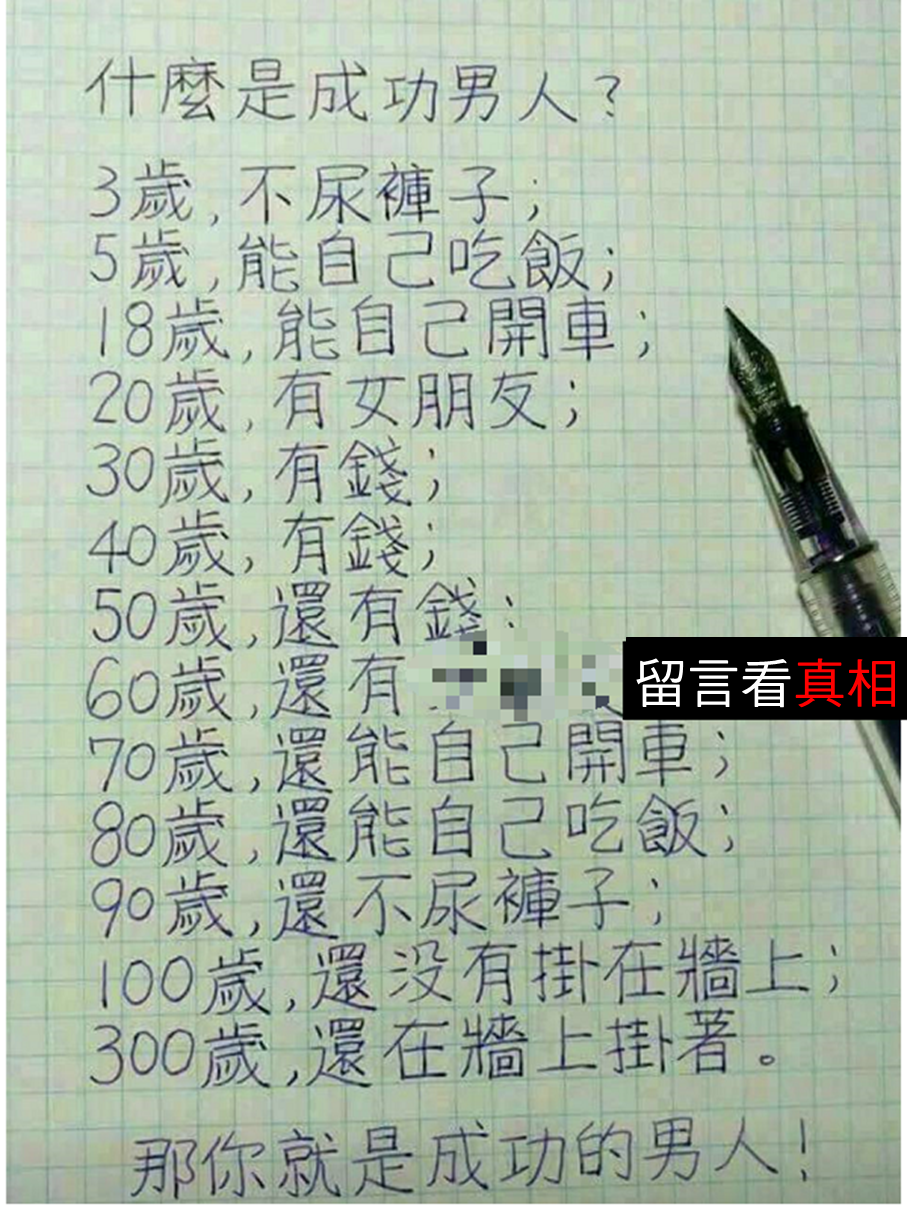 什麼是成功男人?
3歲,不尿褲子;
5歲,能自己吃飯;
18歲,能自己開車;
20歲,有女朋友;
30歲,有錢;
40歲,有錢;
50歲,還有錢;
60歲,還有
留言看真相
70歲,還能自己開車;
80歲,還能自己吃飯;
90歲,還不尿褲子;
100歲,還没有掛在牆上;
300歲,還在牆上掛著。
那你就是成功的男人!